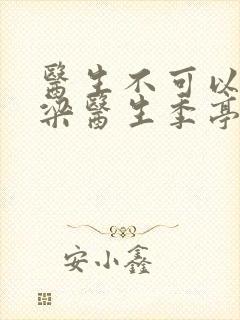 醫生不可以
梁醫生季亭
安小鑫